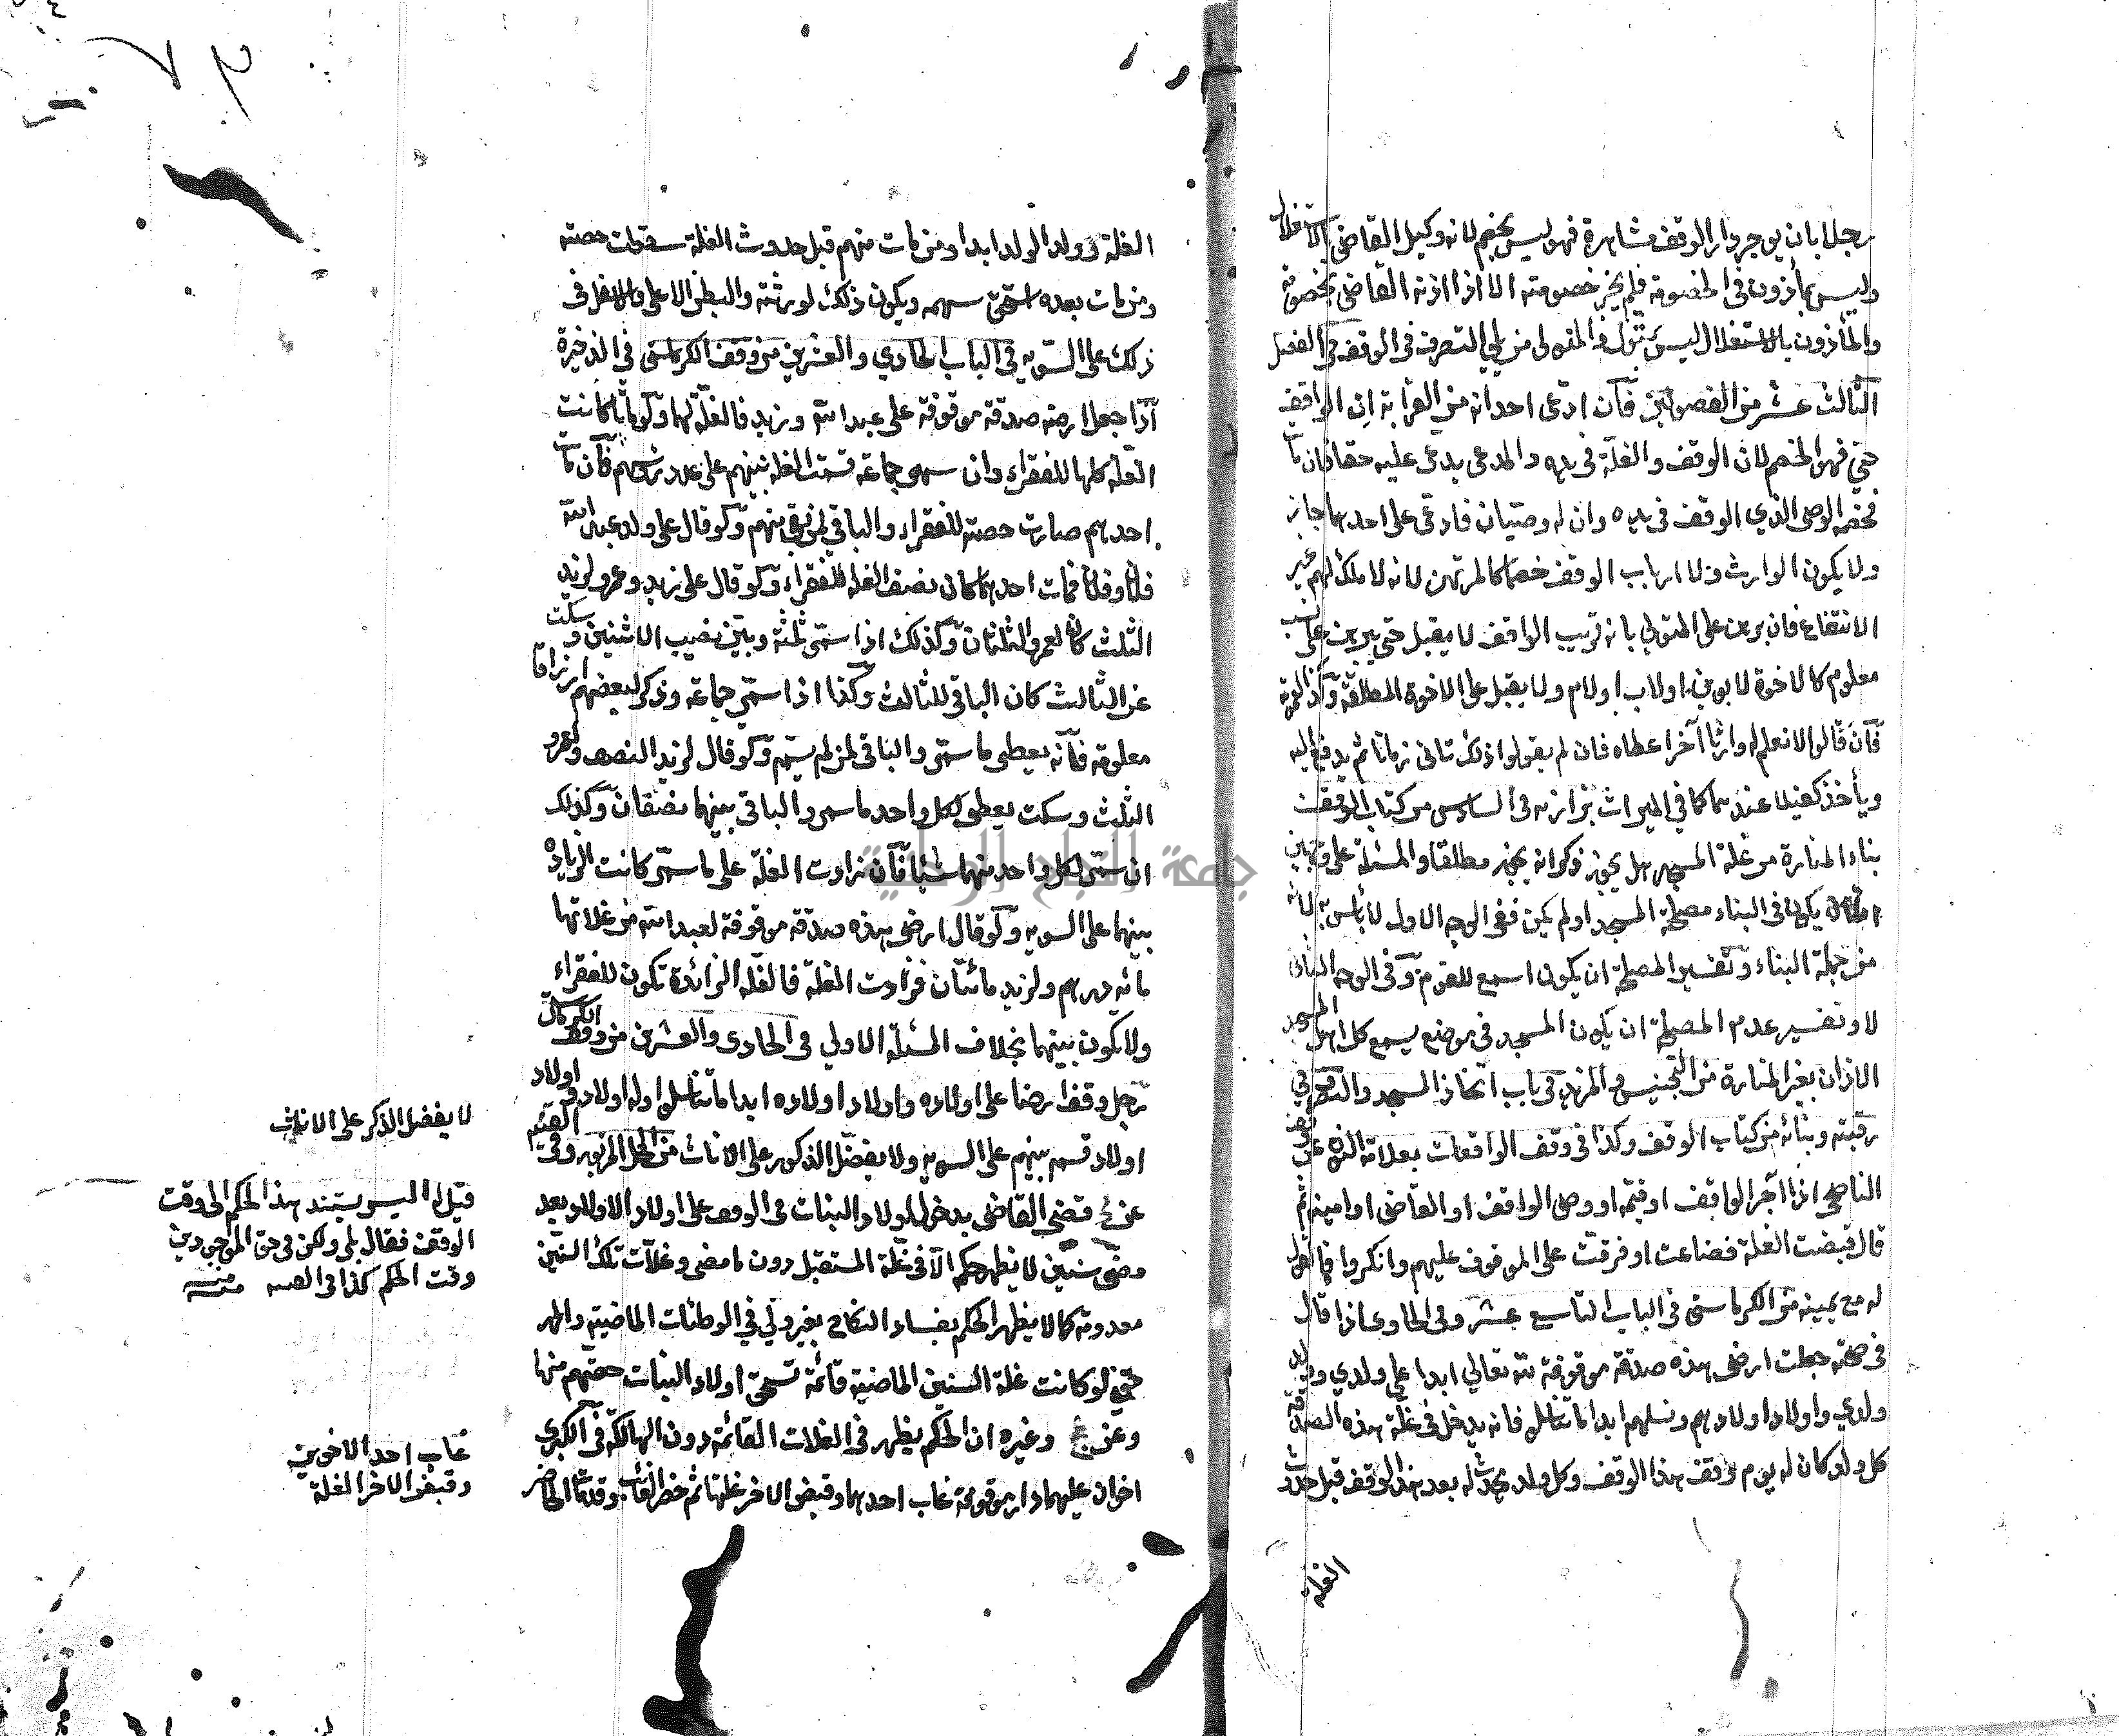 رجلا بان يوجر دار الوقف مشاهرة فهو ليس بخصم لانه وكيل القاضي بالاستغلال
وليس بمأذون في الخصومة فلم يجز خصومته الا اذا اذنه القاضي بخصومة
والمأذون بالاستغلال ليس بمتول والمتولي من يلي التصرف في الوقف في الفصل
الثالث عشر من الفصولين فان ادعى احد انه من القرابة ان الواقف
حي فهو الخصم لان الوقف والغلة في يده والمدعي يدعي عليه حقا فان مات
فخصمه الوصي الذي الوقف في يده وان له وصيان فادعى على احدهما جاز
ولا يكون الوارث ولا ارباب الوقف خصما كالمرتهن لانه لا ملك لهم غير
الانتفاع فان برهن على المتولي بانه قريب الواقف لا يقبل حتى يبرهن على نسب
معلوم كالاخوة لابوين او لاب او لام ولا يقبل على الاخوة المطلقة وكذا العمومة
فان قالوا لا نعلم له وارثا آخر اعطاه فان لم يقولوا ذلك تأنى زمانا ثم يدفع اليه
ويأخذ كفيلا عندهما كما في الميراث بزازيه في السادس من كتاب الوقف
بناء المنارة من غلة المسجد هل يجوز ذكر انه يجوز مطلقا والمسئلة على وجهين
اما ان يكون في البناء مصلحة المسجد او لم يكن ففي الوجه الاول لا بأس به لانه
من جملة البناء وتفسير المصلحة ان يكون اسمع للقوم وفي الوجه الثاني
لا وتفسير عدم المصلحة ان يكون المسجد في موضع يسمع كل اهل المسجد
الاذان بغير المنارة من التجنيس والمزيد في باب اتخاذ المسجد والتصرف في
رقبته وبنائه من كتاب الوقف وكذا في وقف الواقعات بعلامة النون عن وقف
الناصحي اذا آجر الواقف او قيمه او وصي الواقف او القاضي او امينه ثم
قال قبضت الغلة فضاعت او فرقت على الموقوف عليهم وانكروا فالقول
له مع يمينه من الكرماستي في الباب التاسع عشر وفي الحاوي اذا قال
في صحته جعلت ارضي هذه صدقة موقوفة لله تعالى ابدا على ولدي وولد
ولدي واولاد اولادهم ونسلهم ابدا ما تناسلوا فانه يدخل في غلة هذه الصدقة
كل ولد كان له يوم وقف هذا الوقف وكل ولد يحدث له بعد هذا الوقف قبل حدوث
الغلة
الغلة وولد الولد ابدا ومن مات منهم قبل حدوث الغلة سقطت حصته
ومن مات بعده استحق سهمه ويكون ذلك لورثته والبطن الاعلى والاسفل في
ذلك على السويه في الباب الحادي والعشرين من وقف الكرماستي في الذخيرة
اذا جعل ارضه صدقة موقوفة على عبد الله وزيد فالغلة لهما ولو ماتا كانت
الغلة كلها للفقراء وان سمى جماعة قسمت الغلة بينهم على عدد رؤسهم فان مات
احدهم صارت حصته للفقراء والباقي لمن بقي منهم ولو قال على ولد عبد الله
فلان وفلان فمات احدهما كان نصف الغلة للفقراء ولو قال على زيد وعمرو لزيد
الثلث كان لعمرو الثلثان وكذلك اذا سمى ثلثة وبين نصيب الاثنين وسكت
عن الثالث كان الباقي للثالث وكذا اذا سمى جماعة وذكر لبعضهم ارزاقا
معلومة فانه يعطى ما سمى والباقي لمن لم يسم ولو قال لزيد النصف ولعمرو
الثلث وسكت يعطى لكل واحد ما سمى والباقي بينهما نصفان وكذلك
ان سمى لكل واحد منهما شيأ فان زادت الغلة على ما سمى كانت الزيادة
بينهما على السويه ولو قال ارضي هذه صدقة موقوفة لعبد الله من غلاتها
مائه درهم ولزيد مائتان فزادت الغلة فالغلة الزائدة تكون للفقراء
ولا يكون بينهما بخلاف المسئلة الاولى في الحادي والعشرين من وقف الكرماستي
رجل وقف ارضا على اولاده واولاد اولاده ابدا ما تناسلوا وله اولاد اولاد
اولاد قسم بينهم على السويه ولا يفضل الذكور على الاناث من المحل المزبور وفي القنية
عن قضى القاضي بدخول اولاد البنات في الوقف على اولاد الاولاد بعد
مضي سنين لا يظهر حكمه الا في غلة المستقبل دون ما مضى وغلات تلك السنين
معدومة كما لا يظهر الحكم بفساد النكاح بغير ولي في الوطئات الماضية والمهر
حتى لو كانت غلة السنين الماضية قائمة تستحق اولاد البنات حصتهم منها
وعن وغيره ان الحكم يظهر في الغلات القائمة دون الهالكة في الكبرى
اخوان عليهما دار موقوفة غاب احدهما وقبض الاخر غلتها ثم حضر الغائب وقد مات الحاضر
لا يفضل الذكر على الاناث
قيل له اليس يستند هذا الحكم الى وقت
الوقف فقال بلى ولكن في حق الموجودين
وقت الحكم كذا في القنيه منه
غاب احد الاخوين
وقبض الاخر الغلة
جامعة النجاح الوطنية